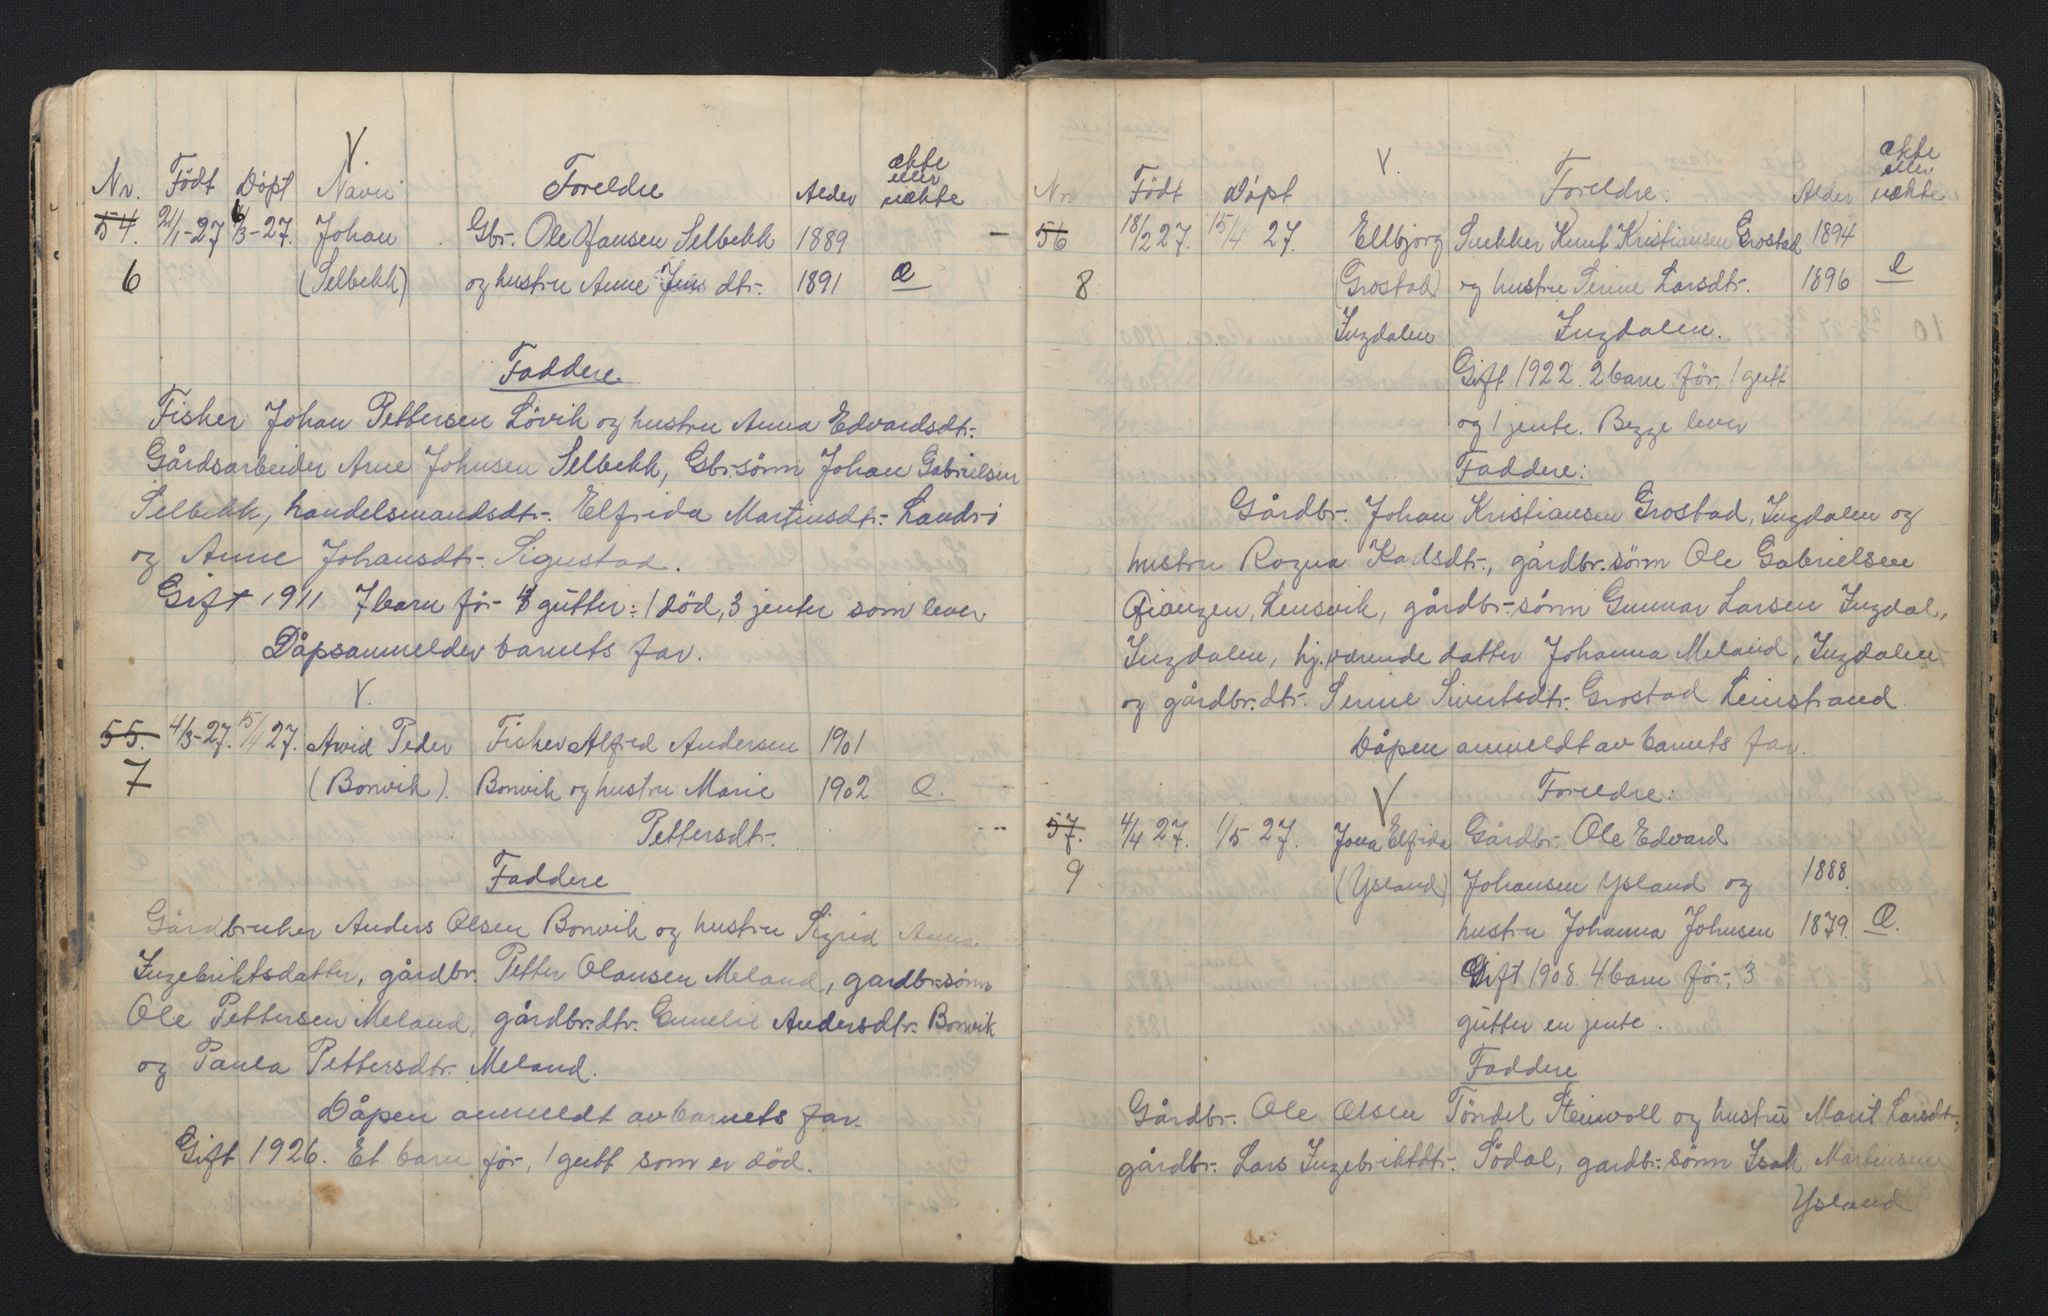 V.
Nr. Født Døpt Navn Foreldre Alder ekte eller uekte
54. 21/1-27 6/3-27. Johan Gbr. Ole Hansen Selbekk 1889
6 (Selbekk) og hustru Anne Jens dtr. 1891 e
Faddere
Fisker Johan Pettersen Lövik og hustru Anna Edvardsdtr.
Gårdsarbeider Arne Johnsen Selbekk, Gbr.sönn Johan Gabrielsen
Selbekk, handelsmandsdtr. Elfrida Martinsdtr. Landrö
og Anne Johansdtr. Sigustad.
Gift 1911 7 barn för 4 gutter: 1 död, 3 jenter som lever.
Dåpsanmelder barnets far.
V.
55. 4/3-27. 15/4 27. Arvid Peder Fisker Alfred Andersen 1901
7 (Bonvik). Bonvik og hustru Marie 1902 e.
Pettersdtr.
Faddere
Gårdbruker Anders Olsen Bonvik og hustru Sigrid Anna
Ingebriktsdatter, gårdbr. Petter Olausen Meland, gardbr.sönn
Ole Pettersen Meland, gårdbr.dtr. Emelie Andersdtr. Bonvik
og Paula Pettersdtr. Meland.
Dåpen anmeldt av barnets far.
Gift 1926. Et barn för, 1 gutt som er död.
V.
Nr Født Døpt Foreldre. Alder ekte eller uekte
56 18/2 27. 15/4 27. Ellbjorg Snekker Knut Kristiansen Grostad 1894
8 (Grostad) og hustru Serine Larsdtr. 1896 e
Ingdalen Ingdalen.
Gift 1922. 2 barn för, 1 gutt
og 1 jente. Begge lever
Faddere:
Gårdbr. Johan Kristiansen Grostad, Ingdalen og
hustru Ragna Karlsdtr., gårdbr.sönn Ole Gabrielsen
Gjengen, Lensvik, gårdbr.sönn Gunnar Larsen Ingdal,
Ingdalen, hj.værende datter Johanna Meland, Ingdalen
og gårdbr.dtr. Serine Sivertsdtr. Grostad Leinstrand.
Dåpen anmeldt av barnets far.
V Foreldre:
57. 4/4 27. 1/5 27. Jona Elfrida Gårdbr. Ole Edvard
9 (Ysland) Johansen Ysland og 1888.
hustru Johanna Johnsen 1879. e.
Gift 1908. 4 barn för, 3
gutter en jente.
Faddere
Gårdbr. Ole Olsen Töndel Steinvoll og hustru Marit Larsdtr.,
gårdbr. Lars Ingebriktdtr. Södal, gardbr.sönn Isak Martinsen
Ysland